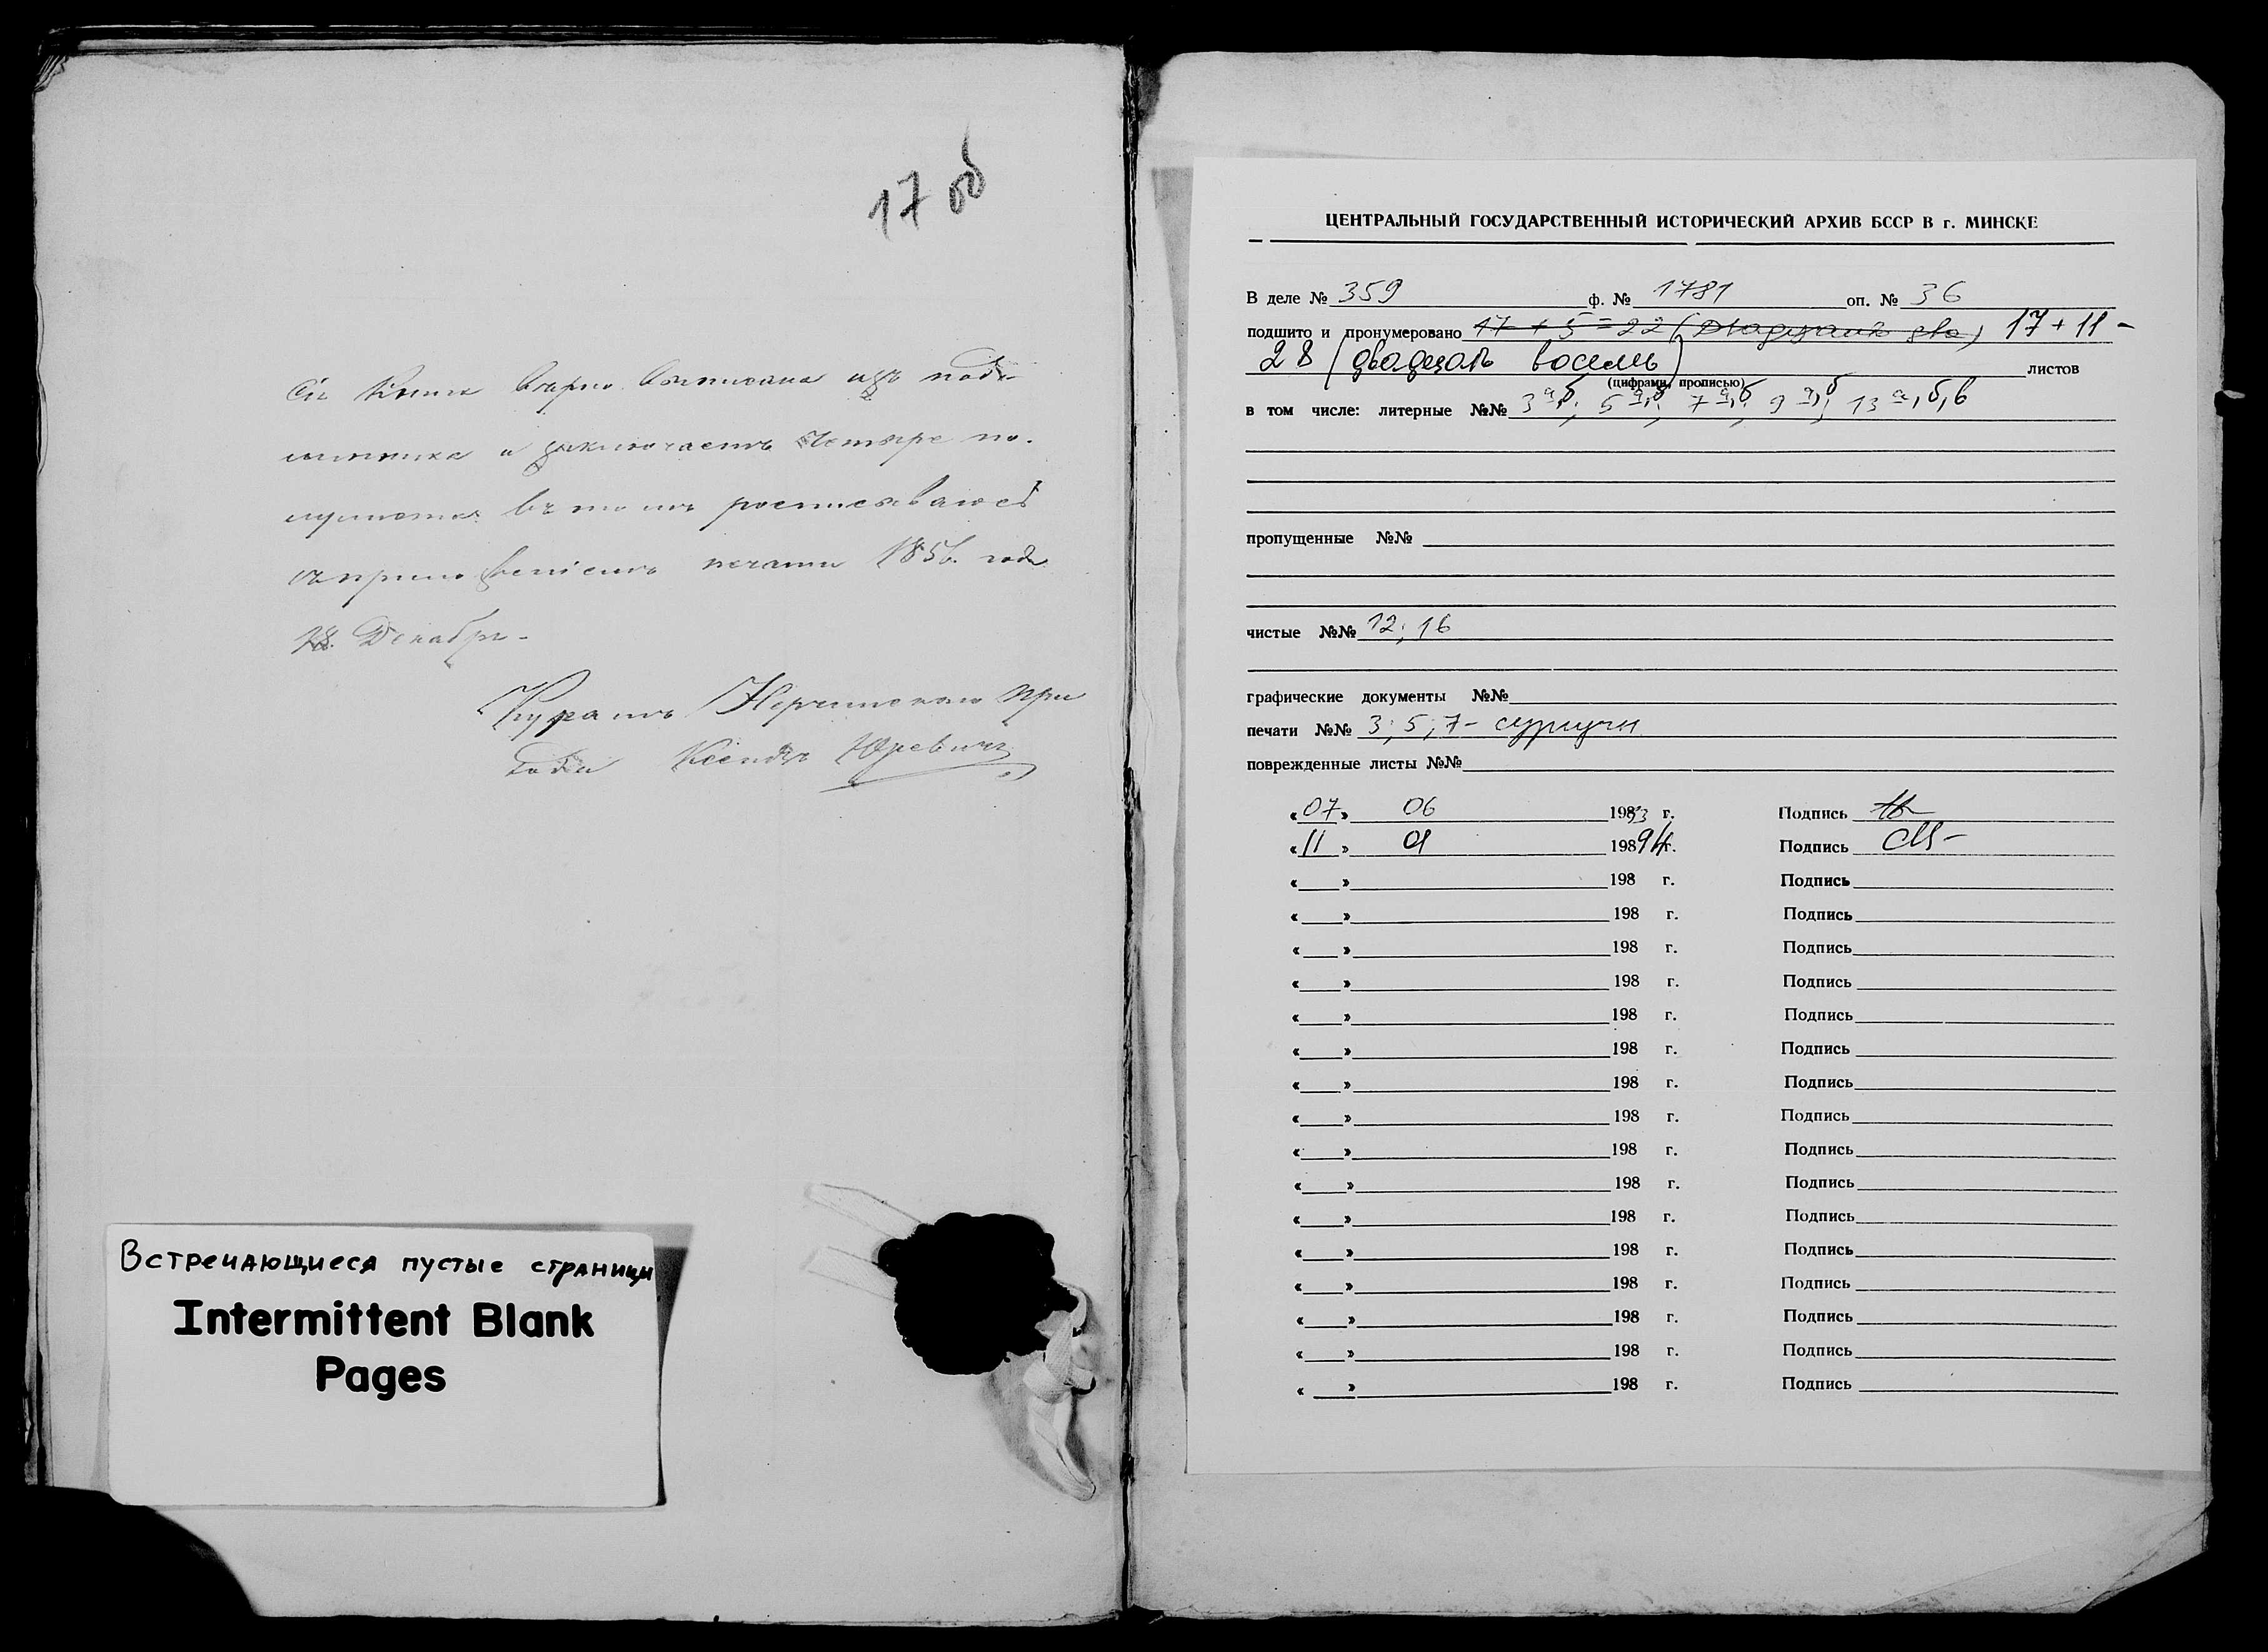 17 об
Сiя Книга вѣрно выписана изъ подъ-
линника и заключаетъ Четыре по-
лулистка въ томъ росписываюсь
съ приложенiемъ печати 185 года
Декабря -
Куратъ при
Ксендзъ Юревичъ
Встречающиеся пустые страницы
Intermittent Blank
Pages
ЦЕНТРАЛЬНЫЙ ГОСУДАРСТВЕННЫЙ ИСТОРИЧЕСКИЙ АРХИВ БССР В г. МИНСКЕ
В деле № 359 ф. № 1781 оп. № 36
подшито и пронумеровано 17 + 5 = 22 (двадцать два) 17 + 11 -
28 (двадцать восемь) листов
(цифрами, прописью)
в том числе: литерные №№ 3а,б; 5а,б; 7а,б; 9а,б; 13а,б,в
пропущенные №№
чистые №№ 12; 16
графические документы №№
печати №№ 3; 5; 7 - сургучн
поврежденные листы №№
«07» 06 1983 г. Подпись
«11» 01 19894 г. Подпись
«___» 198 г. Подпись
«___» 198 г. Подпись
«___» 198 г. Подпись
«___» 198 г. Подпись
«___» 198 г. Подпись
«___» 198 г. Подпись
«___» 198 г. Подпись
«___» 198 г. Подпись
«___» 198 г. Подпись
«___» 198 г. Подпись
«___» 198 г. Подпись
«___» 198 г. Подпись
«___» 198 г. Подпись
«___» 198 г. Подпись
«___» 198 г. Подпись
«___» 198 г. Подпись